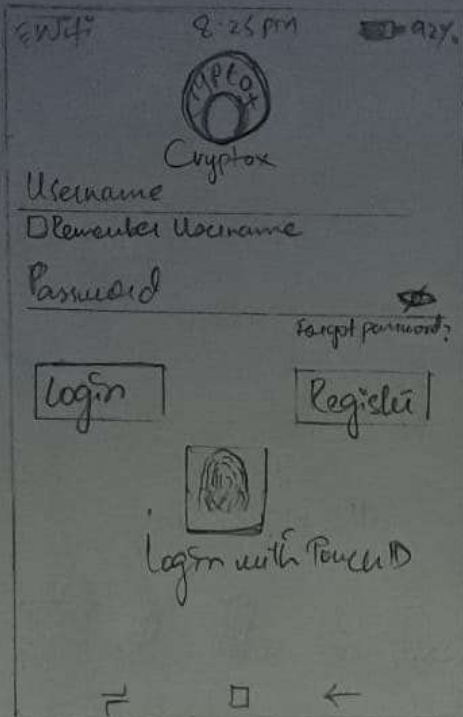 Wifi 8:25 pm 92%
Cryptox
Cryptox
Username
Remember Username
Password
Forgot password?
Login Register
Login with Touch ID